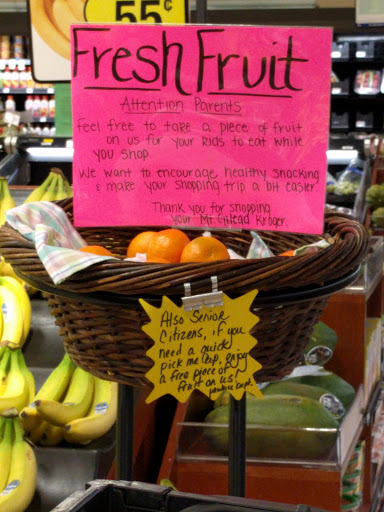 55¢
Fresh Fruit
Attention Parents
Feel free to take a piece of fruit
on us for your kids to eat while
you shop.
We want to encourage healthy snacking
& make your shopping trip a bit easier
Thank you for shopping
your Mt Gilead Kroger.
Also Senior
Citizens, if you
need a quick
pick me up, enjoy
a free piece of
fruit on us!
Produce Dept.